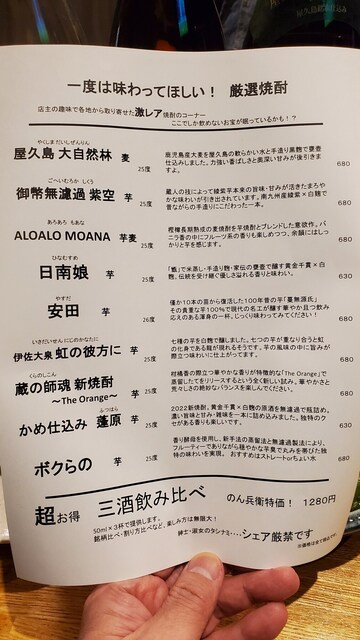 一度は味わってほしい！ 厳選焼酎
店主の趣味で各地から取り寄せた激レア焼酎のコーナー
ここでしか飲めないお宝が眠っているかも！？
やくしまだいしぜんりん
屋久島 大自然林 麦 25度
鹿児島産大麦を屋久島の軟らかい水と手造り黒麹で甕壺
仕込みしました。力強い香ばしさと奥深い甘みが後引きま
すよ。 680
ごへいむろか しくう
御幣無濾過 紫空 芋 25度
蔵人の技によって綾紫芋本来の旨味・甘みが活きたまろや
かな味わいが引き出されています。南九州産綾紫×白麹で
昔ながらの手造りにこだわった一本。 680
あろあろ もあな
ALOALO MOANA 芋麦 25度
樫樽長期熟成の麦焼酎を芋焼酎とブレンドした意欲作。バ
ニラ香の中にフルーツ系の香りも楽しめつつ、余韻にはしっ
かりと芋を感じます。 680
ひなむすめ
日南娘 芋 25度
「甑」で米蒸し・手造り麹・家伝の甕壺で醸す黄金千貫×白
麹。伝統を受け継ぐ優しさ溢れる香りと味わい。 630
やすだ
安田 芋 26度
僅か10本の苗から復活した100年昔の芋「蔓無源氏」
その貴重な芋100%で現代の名工が醸す華やか且つ飲み
応えのある渾身の一杯。じっくり味わってみてください！ 680
いさだいせん にじのかなたに
伊佐大泉 虹の彼方に 芋 25度
七種の芋を白麹で醸しました。七つの芋が重なり合うと虹
の化身である龍が現れるそうです。芋の風味の中に旨みが
際立つ味わいに仕上がってます。 680
くらのしこん
蔵の師魂 新焼酎 芋 25度
～The Orange～
柑橘香の際立つ華やかな香りが特徴的な「The Orange」で
蒸留したてをリリースするという全く新しい試み。華やかさと
荒々しさの絶妙なバランスを楽しんでください。 680
ふつはら
かめ仕込み 蓬原 芋 25度
2022新焼酎。黄金千貫×白麹の原酒を無濾過で瓶詰め。
濃い旨味と甘み・雑味を一本に詰め込みました。独特のク
セがある香りも楽しいです。 630
ボクらの 芋 25度
香り酵母を使用し、新手法の蒸留法と無濾過製法により、
フルーティーでありながら穏やかな芋臭で丸みを帯びた独
特の味わいを実現。おすすめはストレートorちょい水 680
超お得 三酒飲み比べ のん兵衛特価！ 1280円
50ml×3杯で提供します。
銘柄比べ・割り方比べなど、楽しみ方は無限大！
紳士・淑女のタシナミ・・・・シェア厳禁です
※価格は全て税込です。